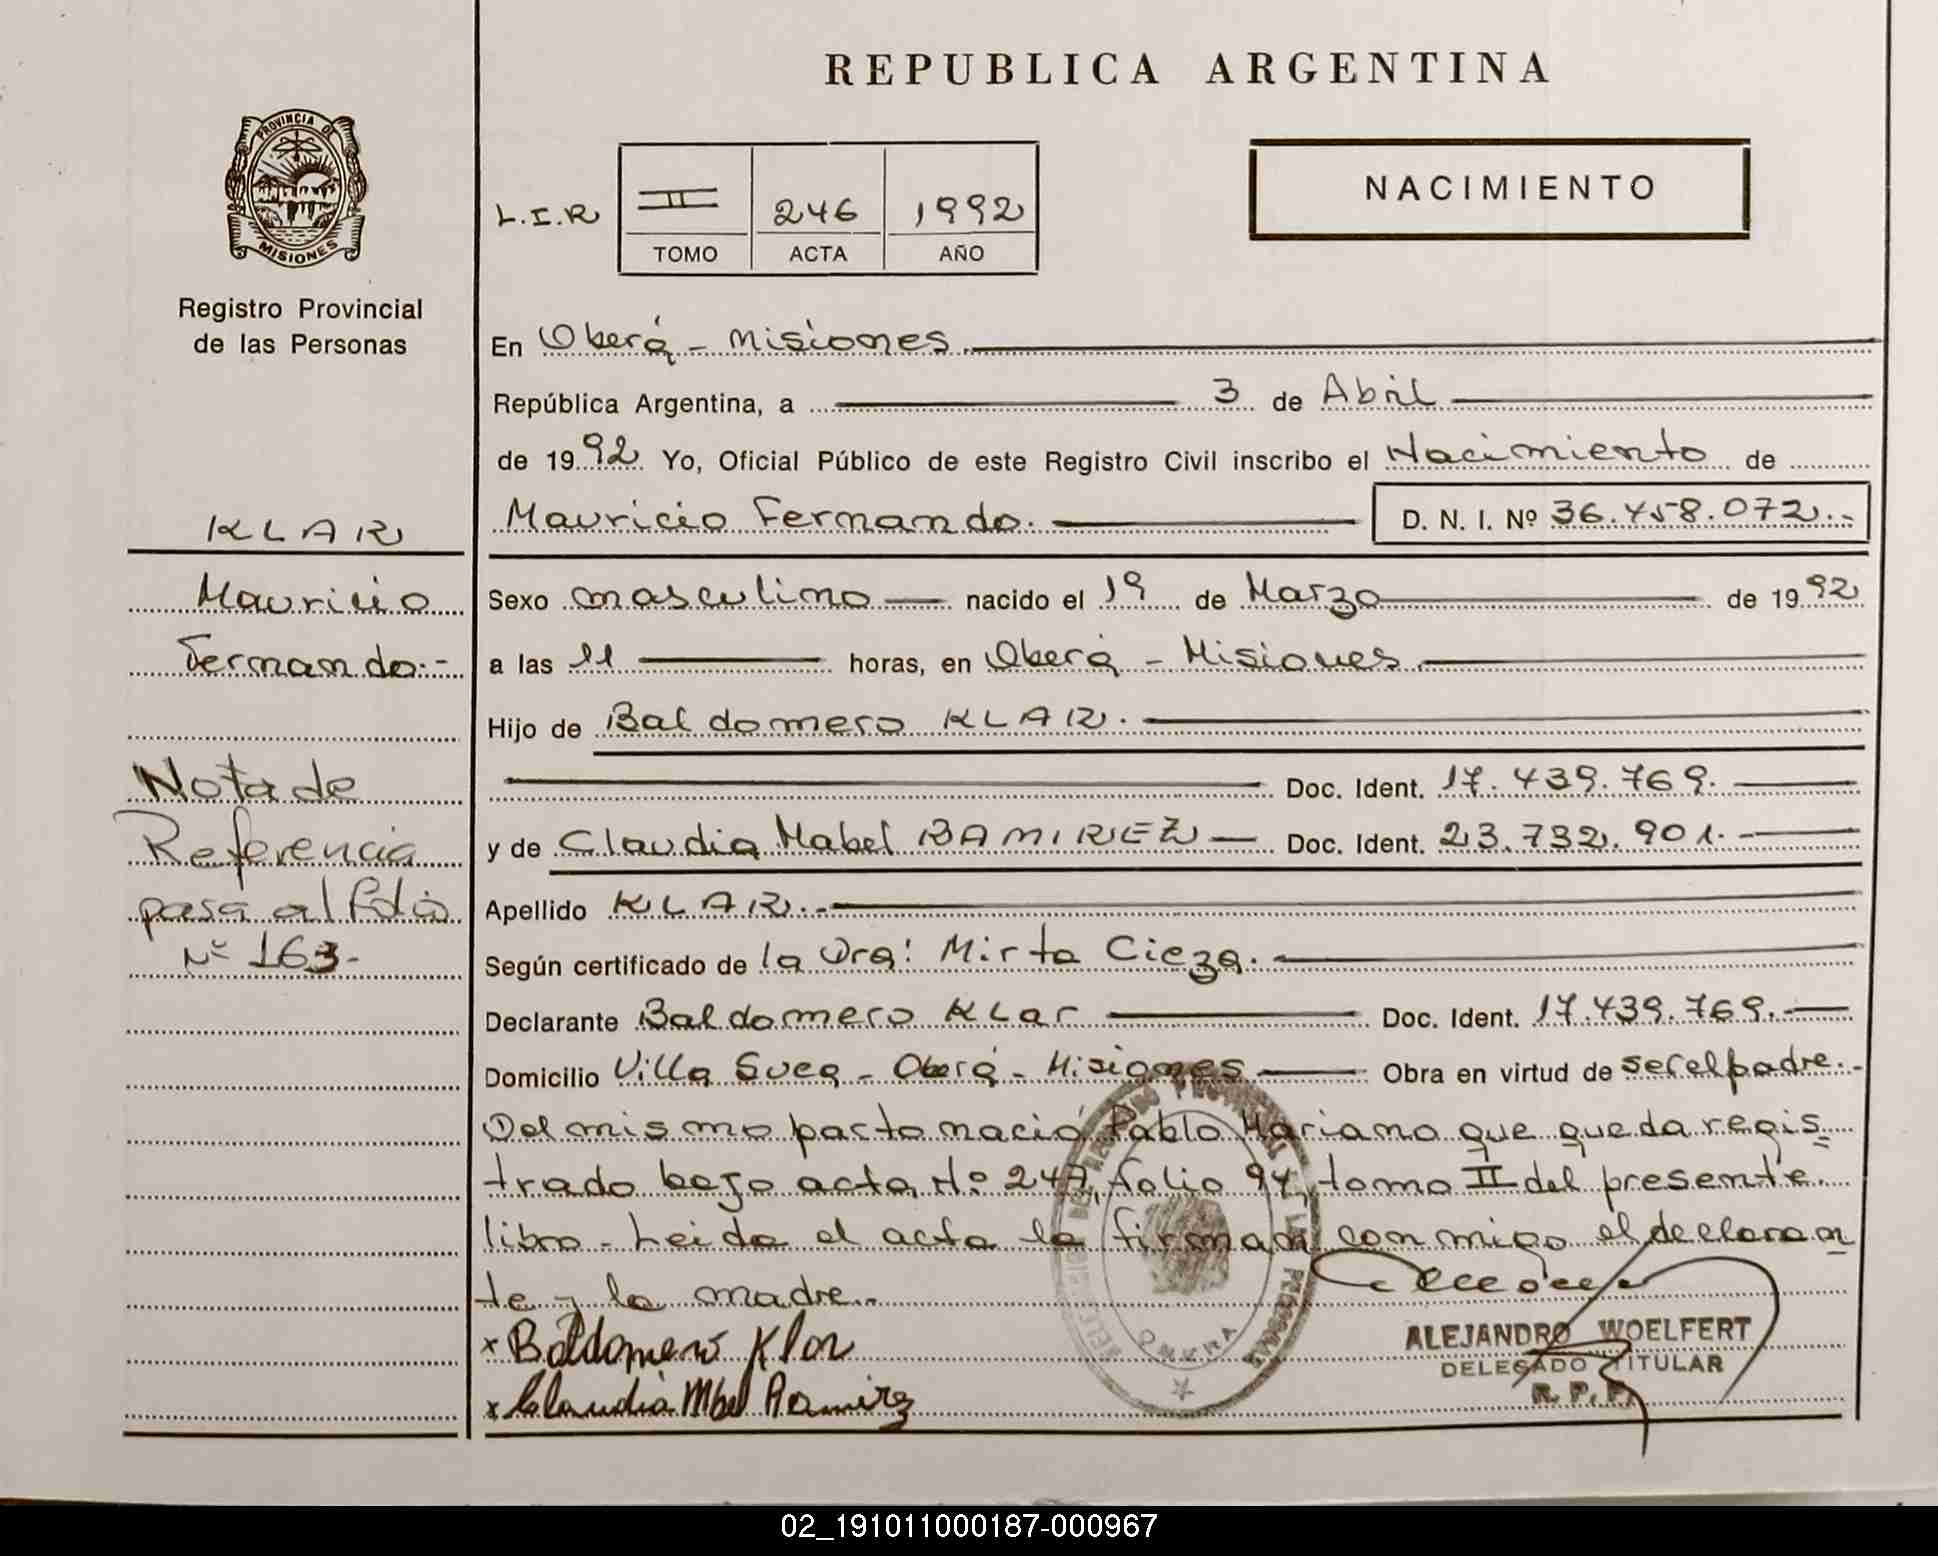 REPUBLICA ARGENTINA
PROVINCIA DE
MISIONES
NACIMIENTO
L.I.R
II 246 1992
TOMO ACTA AÑO
Registro Provincial
de las Personas
En Oberá - Misiones.
República Argentina, a 3 de Abril
de 1992 Yo, Oficial Público de este Registro Civil inscribo el Nacimiento de
Mauricio Fernando. D. N. I. Nº 36.458.072.-
KLAR
Mauricio
Fernando.-
Nota de
Referencia
pasa al folio
Nº 163-
Sexo masculino nacido el 19 de Marzo de 1992
a las 11 horas, en Oberá - Misiones
Hijo de Baldomero KLAR.
Doc. Ident. 17.439.769.
y de Claudia Mabel RAMIREZ Doc. Ident. 23.732.901.
Apellido KLAR.-
Según certificado de la Dra: Mirta Cieza.
Declarante Baldomero KLar Doc. Ident. 17.439.769.
Domicilio Villa Suea - Oberá - Misiones Obra en virtud de ser el padre.-
Del mismo parto nació Pablo Mariano que queda regis
trado bajo acta Nº 247, folio 94, tomo II del presente
libro - Leida el acta la firman conmigo el declaran
te y la madre.-
x Baldomero Klar
x Claudia Mbel Ramirez
ALEJANDRO WOELFERT
DELEGADO TITULAR
R. P. P.
02_191011000187-000967